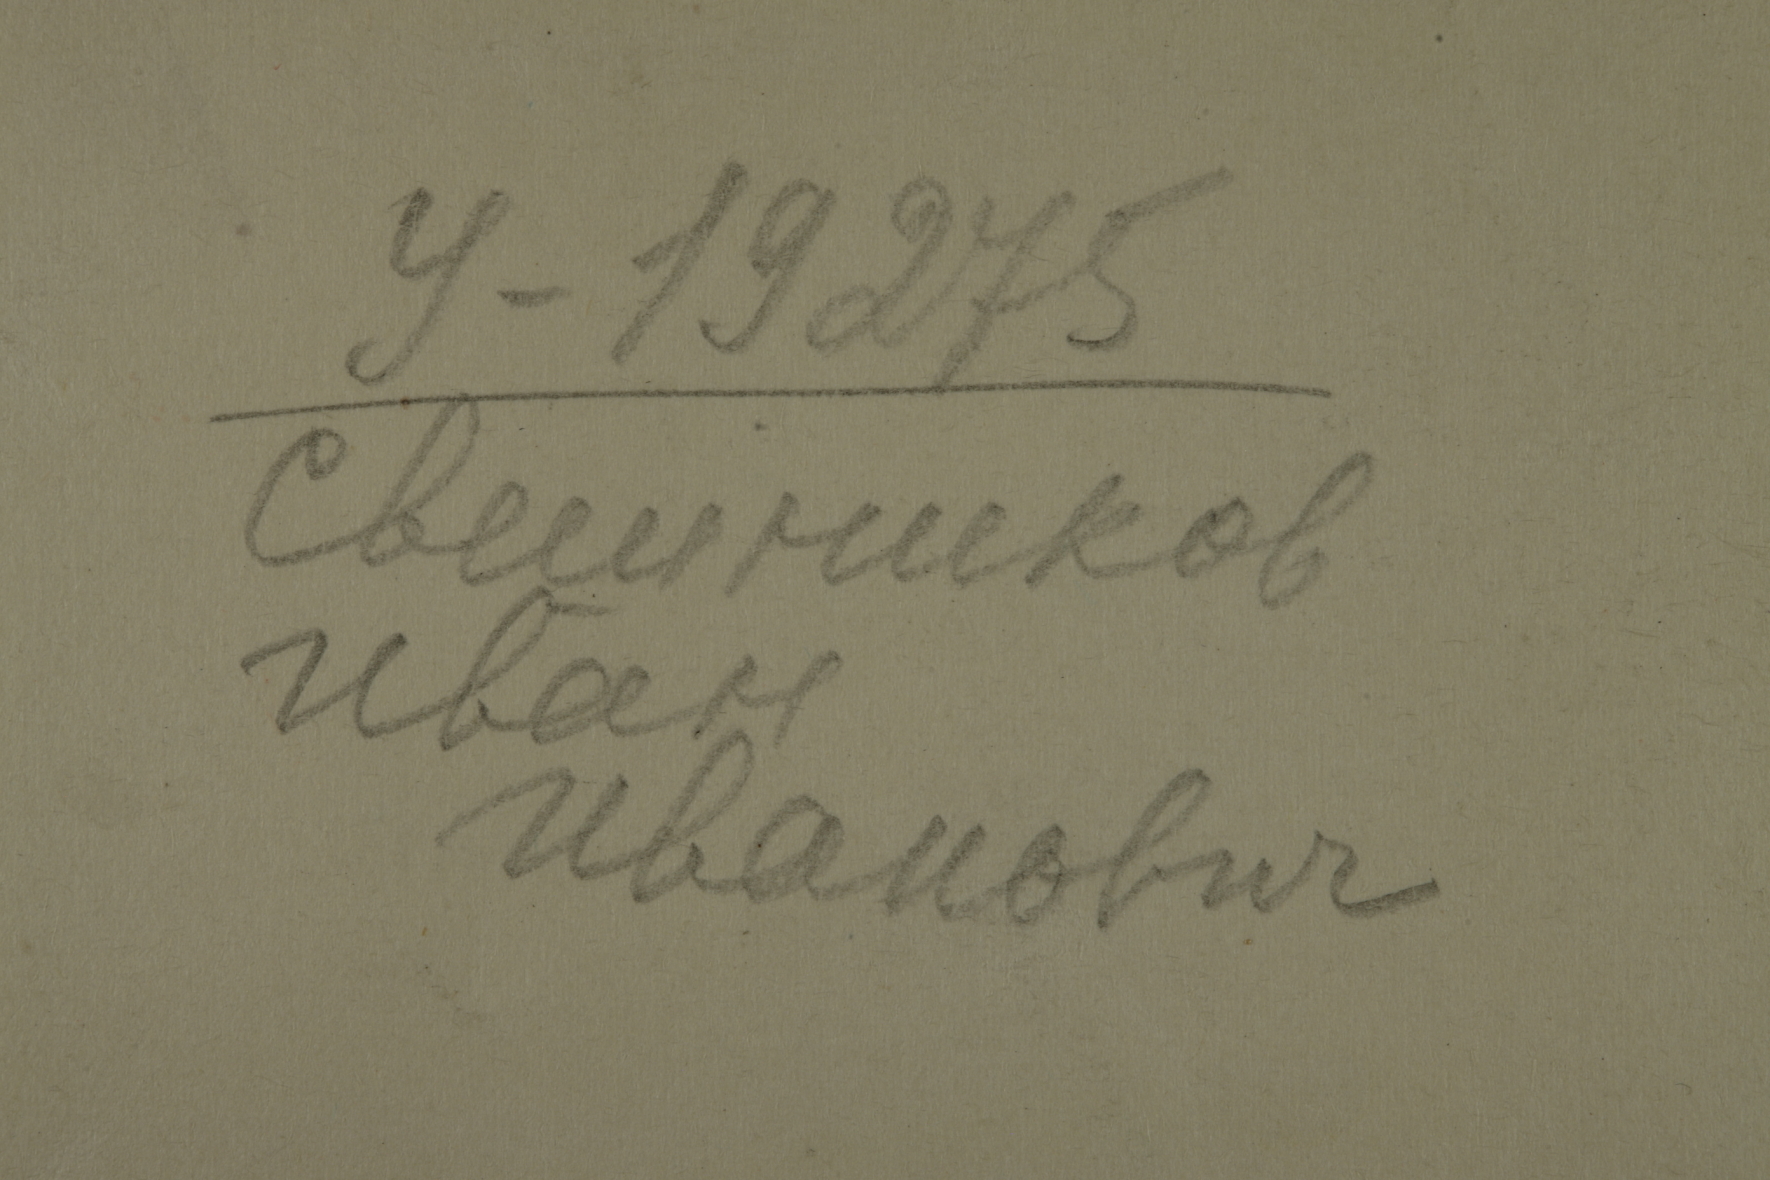 У-19275
Свешников
Иван
Иванович